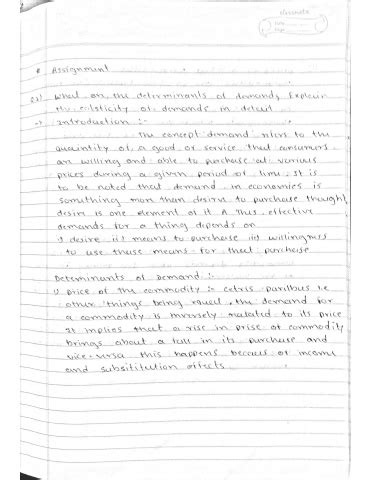 Assignment
Q.2) What are the determinants of demand, Explain
the ealsticity of demands in detail
→ Introduction :-
The concept demand refers to the
quantity of a good or service that consumers
are willing and able to purchase at various
prices during a given period of time. It is
to be noted that demand in economics is
something more than desire to purchase though
desire is one element of it A thus effective
demands for a thing depends on
i) desire ii) means to purchase iii) willingness
to use those means for that purchase
Determinants of Demand :-
1) price of the commodity :- Cetris paribus i.e
other things being equal, the demand for
a commodity is inversely realated to its price
It implies that a rise in prise of commodity
brings about a fall in its purchase and
vice-versa this happens because of income
and subsititution effects.